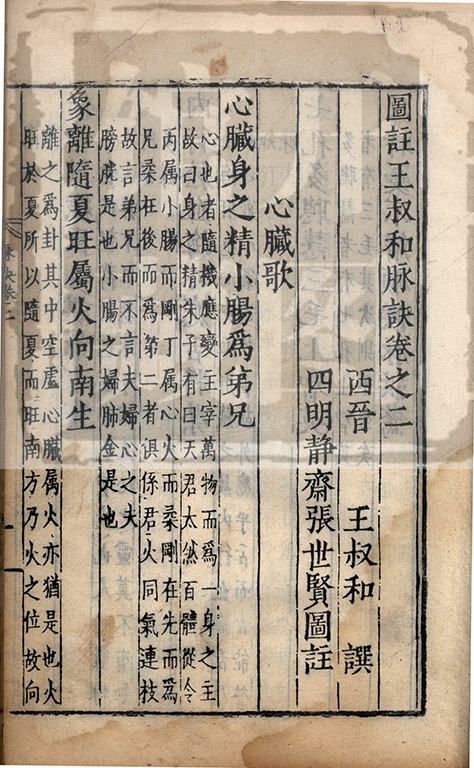 圖註王叔和脉訣卷之二
西晉 王叔和 譔
四明靜齋張世賢圖註
心臓歌
心臓身之精小腸為弟兄
心也者隨機應變主宰萬物而為一身之主
故曰身之精朱子有曰天君太然百體從令
丙属小腸而剛丁属心火而柔剛在先而為
兄柔在後而為第二者俱係君火同氣連枝
故言弟兄而不言夫婦心之夫
膀胱是也小腸之婦肺金是也
象離隨夏旺屬火向南生
離之為卦其中空虛心臓属火亦猶是也火
旺於夏所以隨夏而旺南方乃火之位故向